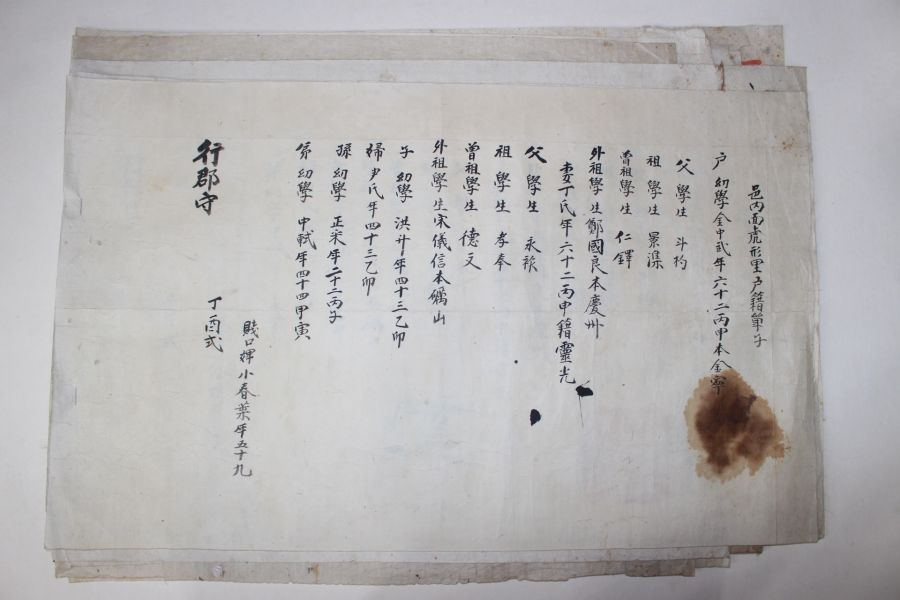 邑內面虎形里戶籍單子
戶 幼學金中武年六十二丙申本金寧
父 學生 斗杓
祖 學生 景濼
曾祖學生 仁鐸
外祖學生鄭國良本慶州
妻丁氏年六十二丙申籍靈光
父 學生 永
祖 學生 孝奉
曾祖學生 德文
外祖學生宋儀信本礪山
子 幼學 洪 年四十三乙卯
婦尹氏年四十三乙卯
孫 幼學 正宋年二十二丙子
弟 幼學 中軾年四十四甲寅
賤口婢小春葉年五十九
丁酉式
行郡守